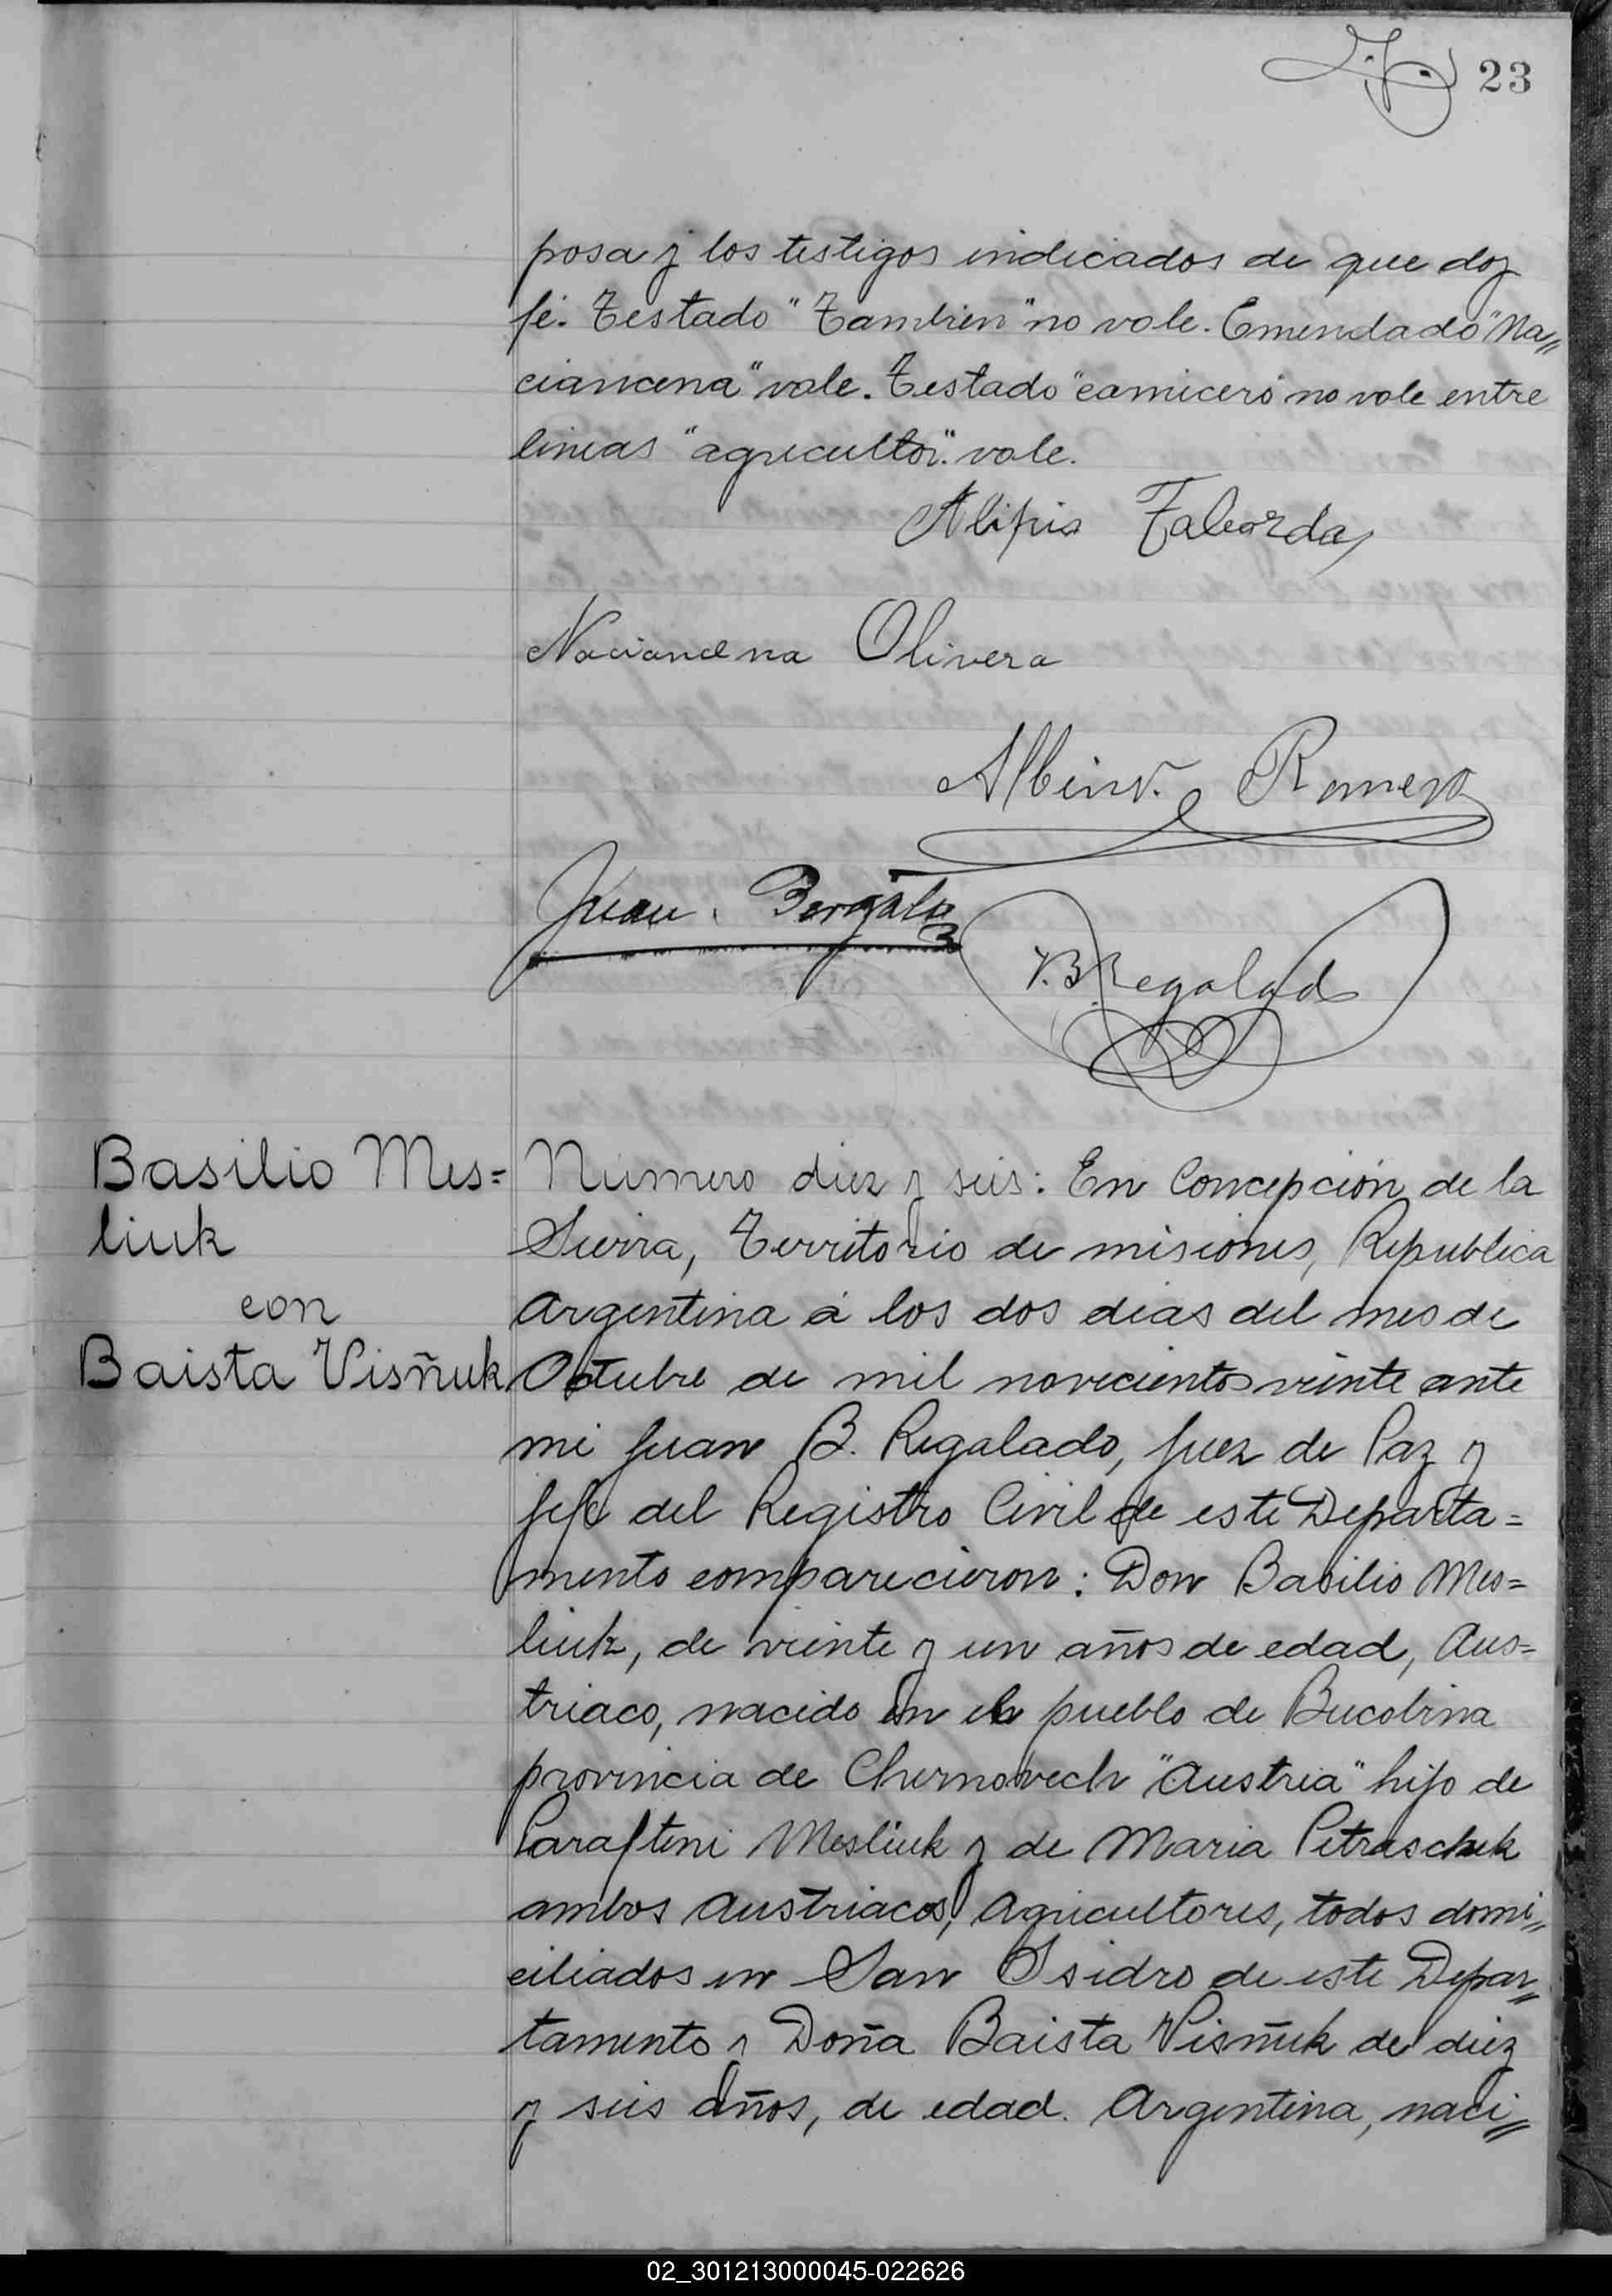 23
posa y los testigos indicados de que doy
fé. Testado "Tambien" no vale. Emendado "Na=
ciancena" vale. Testado "carnicero" no vale entre
lineas "agricultor". vale.
Alipio Taborda
Naciancena Olivera
Albino Romero
Juan
J.B. Regalado
Basilio Mes=
liuk
con
Baista Visñuk
Número diez y seis: En Concepción de la
Sierra, Territorio de misiones, Republica
Argentina á los dos dias del mes de
Octubre de mil novecientos veinte ante
mi Juan B. Regalado, Juez de Paz y
Jefe del Registro Civil de este Departa=
mento comparecieron: Don Basilio Mes=
liuk, de veinte y un años de edad, Aus=
triaco, nacido en el pueblo de Bucobina
provincia de Chernovech "Austria" hijo de
Parafteni Mesliuk y de Maria Petraschek
ambos Austriacos, Agricultores, todos domi=
ciliados en San Isidro de este Depar=
tamento y Doña Baista Visñuk de diez
y seis años, de edad. Argentina, naci=
02_301213000045-022626